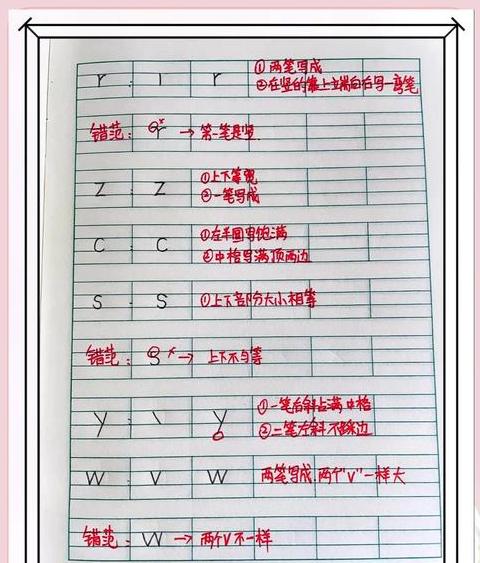 r : ı r ①两笔写成
②在竖的靠上立端向右写一弯笔
错范: r × → 第一笔是竖
z : z ①上下等宽
②一笔写成
c : c ①左半圆写饱满
②中格写满顶两边
s : s ①上下部分大小相等
错范: s × → 上下不匀等
y : \ y ①一笔右斜占满中格
②二笔左斜不踩边
w : v w 两笔写成,两个"v"一样大
错范: w → 两个v不一样